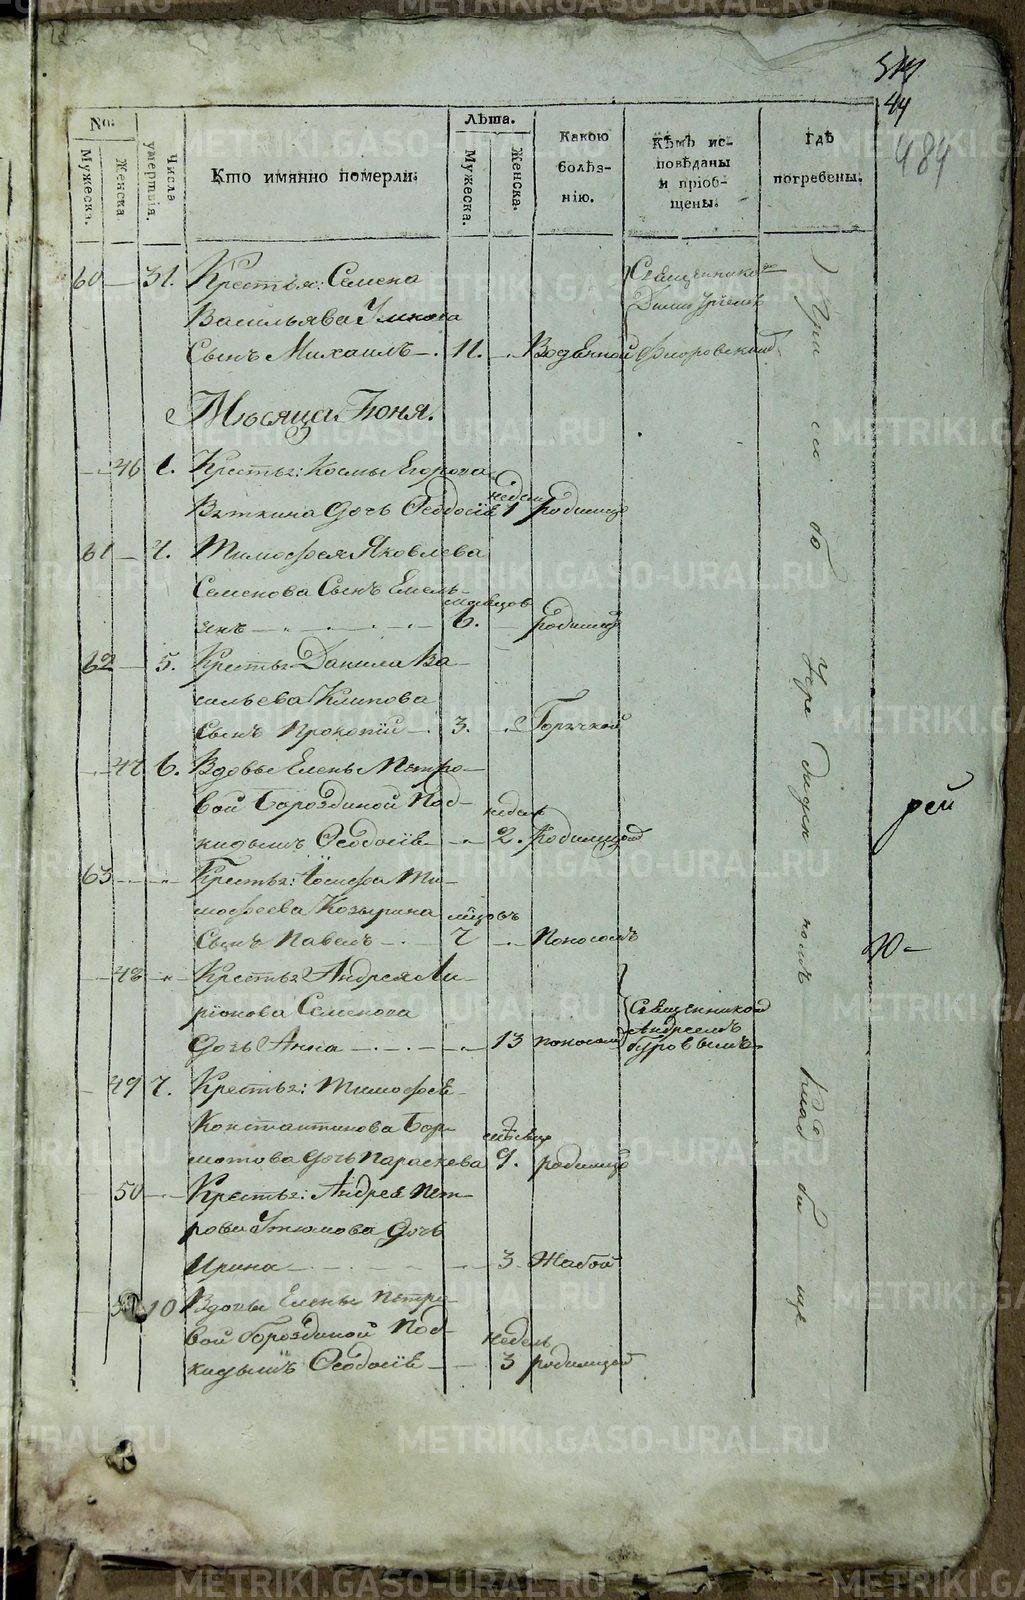 44
484
No:
Мужеска.
Женска.
Числа умертвія.
Кто имянно померли:
Лѣта.
Мужеска.
Женска.
Какою болѣз-
нію.
Кѣмъ ис-
повѣданы
и пріоб-
щены.
Гдѣ
погребены.
60 — 31. Крестья: Семена
Васильява
Сынъ Михаилъ — . 11. — . Водяной
Священнико
Мѣсяца Іюня.
46 1. Кресть: Космы Егорова
Вяткина дочь Ѳеодосія недел 1 родимце
61 — 4. Тимофея Яковлева
Семенова Сынъ Емель-
янъ — мѣсяцов 6. — родимце
62 — 5. Кресть: Данила Ва-
сильева Климова
Сынъ Прокопій — . 3. — . Горячкой
47 6. Вдовы Елены Петро-
вой Бороздиной Под-
кидышъ Ѳеодосія — недель 2. Родимцой
63 — „ Кресть: Іосифа Ти-
мофеева Козырина
Сынъ Павелъ — . — мцовъ 7 — . Поносомъ
48 — „ Кресть: Андрея Ла-
ріонова Семенова
дочь Анна — 13 поносомъ
Священникомъ
Андреемъ
Буровымъ
49 7. Кресть: Тимофея
Константинова Бор-
мотова дочь Параскева мѣсяц 9. родимце
50 — Кресть: Андрея Пет-
рова Утюмова дочь
Ирина — 3 Жабой
10 Вдовы Елены Петро-
вой Бороздиной Под-
кидышъ Ѳеодосія — недель 3 родимцой
При
Кладбище
рей
METRIKI.GASO-URAL.RU